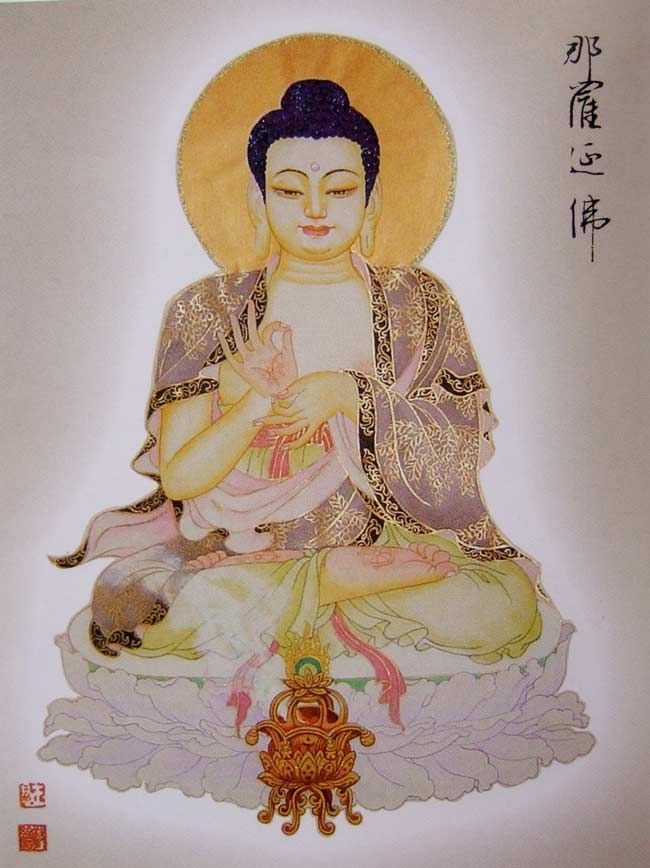 那羅延佛